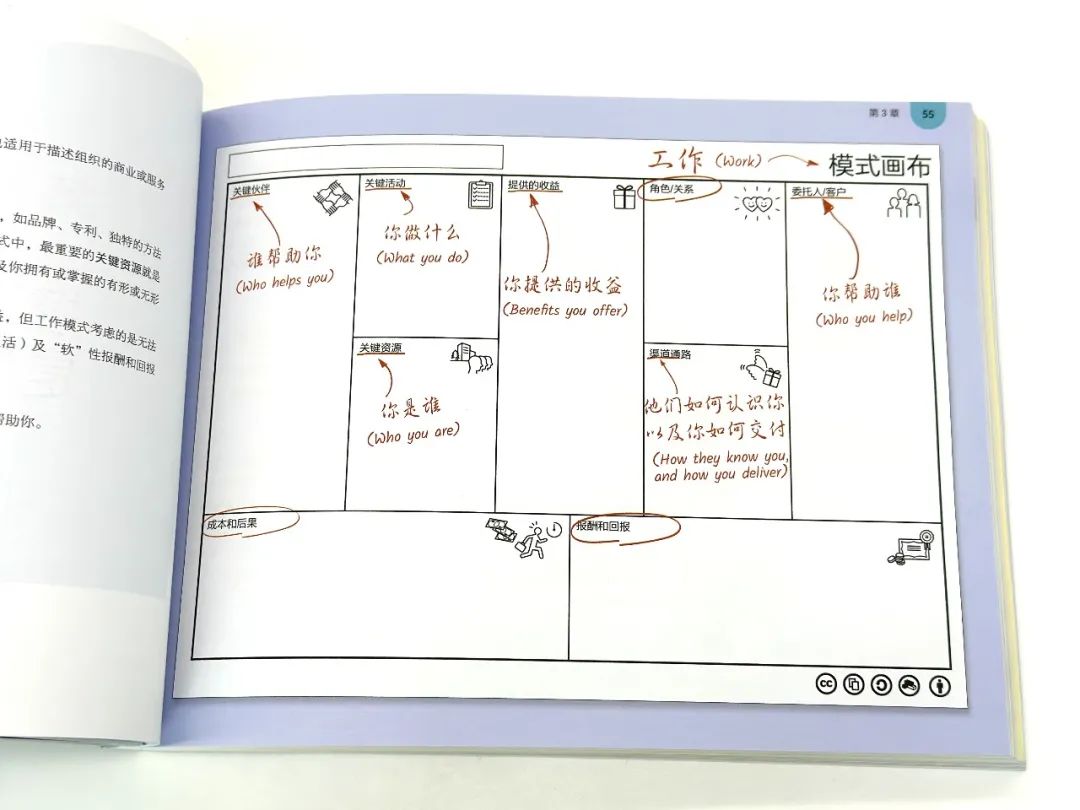 也适用于描述组织的商业或服务
，如品牌、专利、独特的方法
式中，最重要的关键资源就是
及你拥有或掌握的有形或无形
益，但工作模式考虑的是无法
活）及“软”性报酬和回报
帮助你。
第 3 章 55
工作 (Work) 模式画布
关键伙伴
谁帮助你
(Who helps you)
关键活动
你做什么
(What you do)
关键资源
你是谁
(Who you are)
提供的收益
你提供的收益
(Benefits you offer)
角色/关系
渠道通路
他们如何认识你
以及你如何交付
(How they know you,
and how you deliver)
委托人/客户
你帮助谁
(Who you help)
成本和后果
报酬和回报
cc